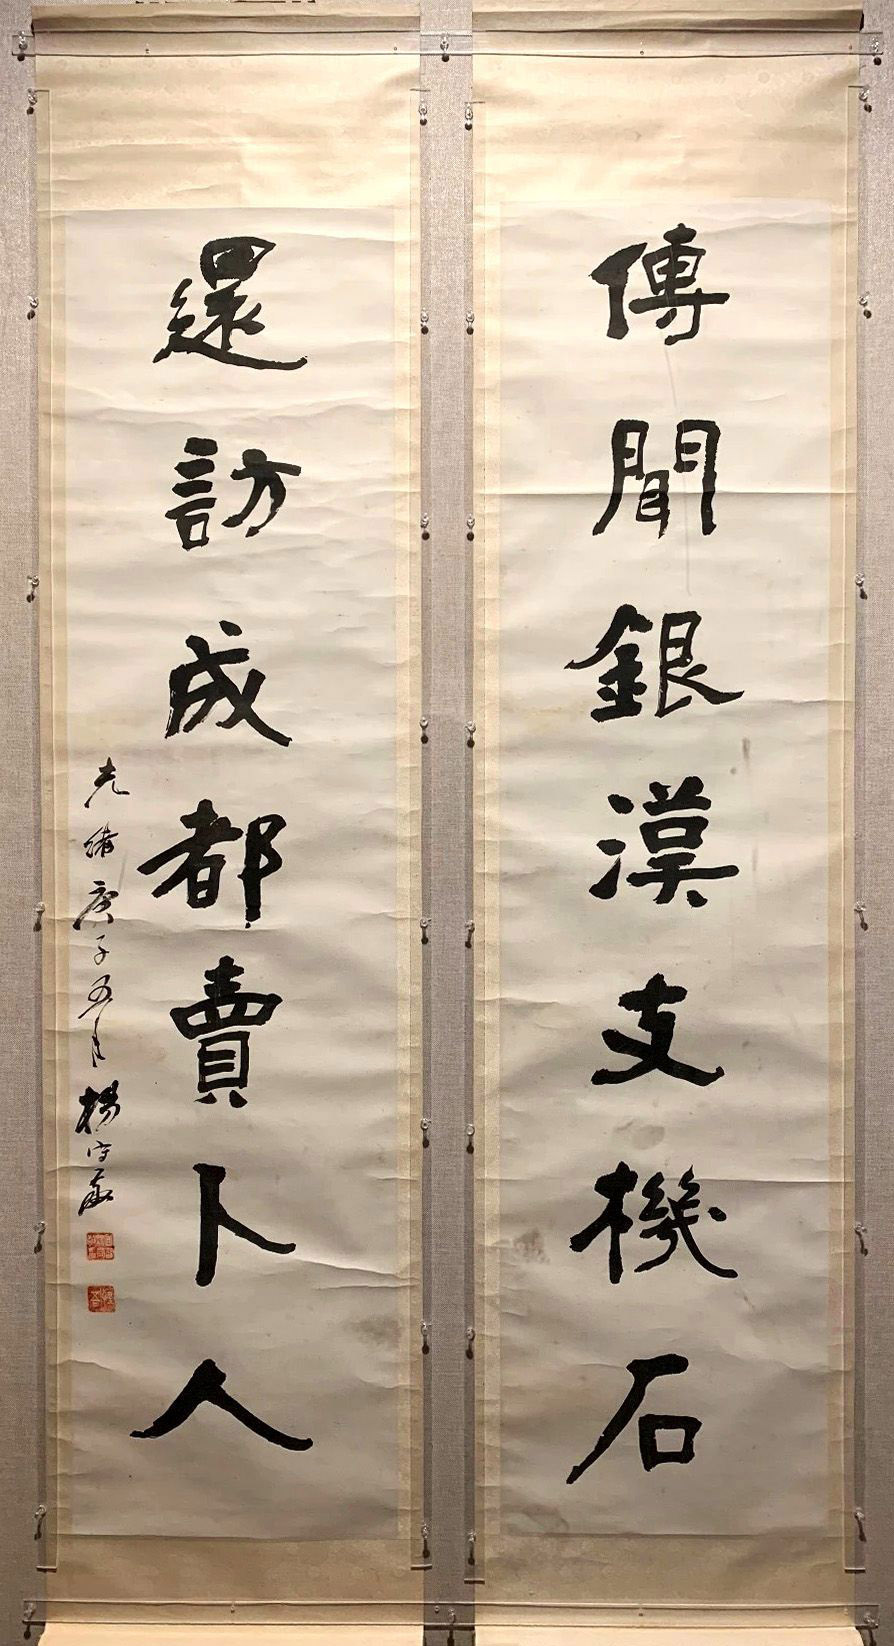 傳聞銀漢支機石
還訪成都賣卜人
光緒庚子五月楊守敬